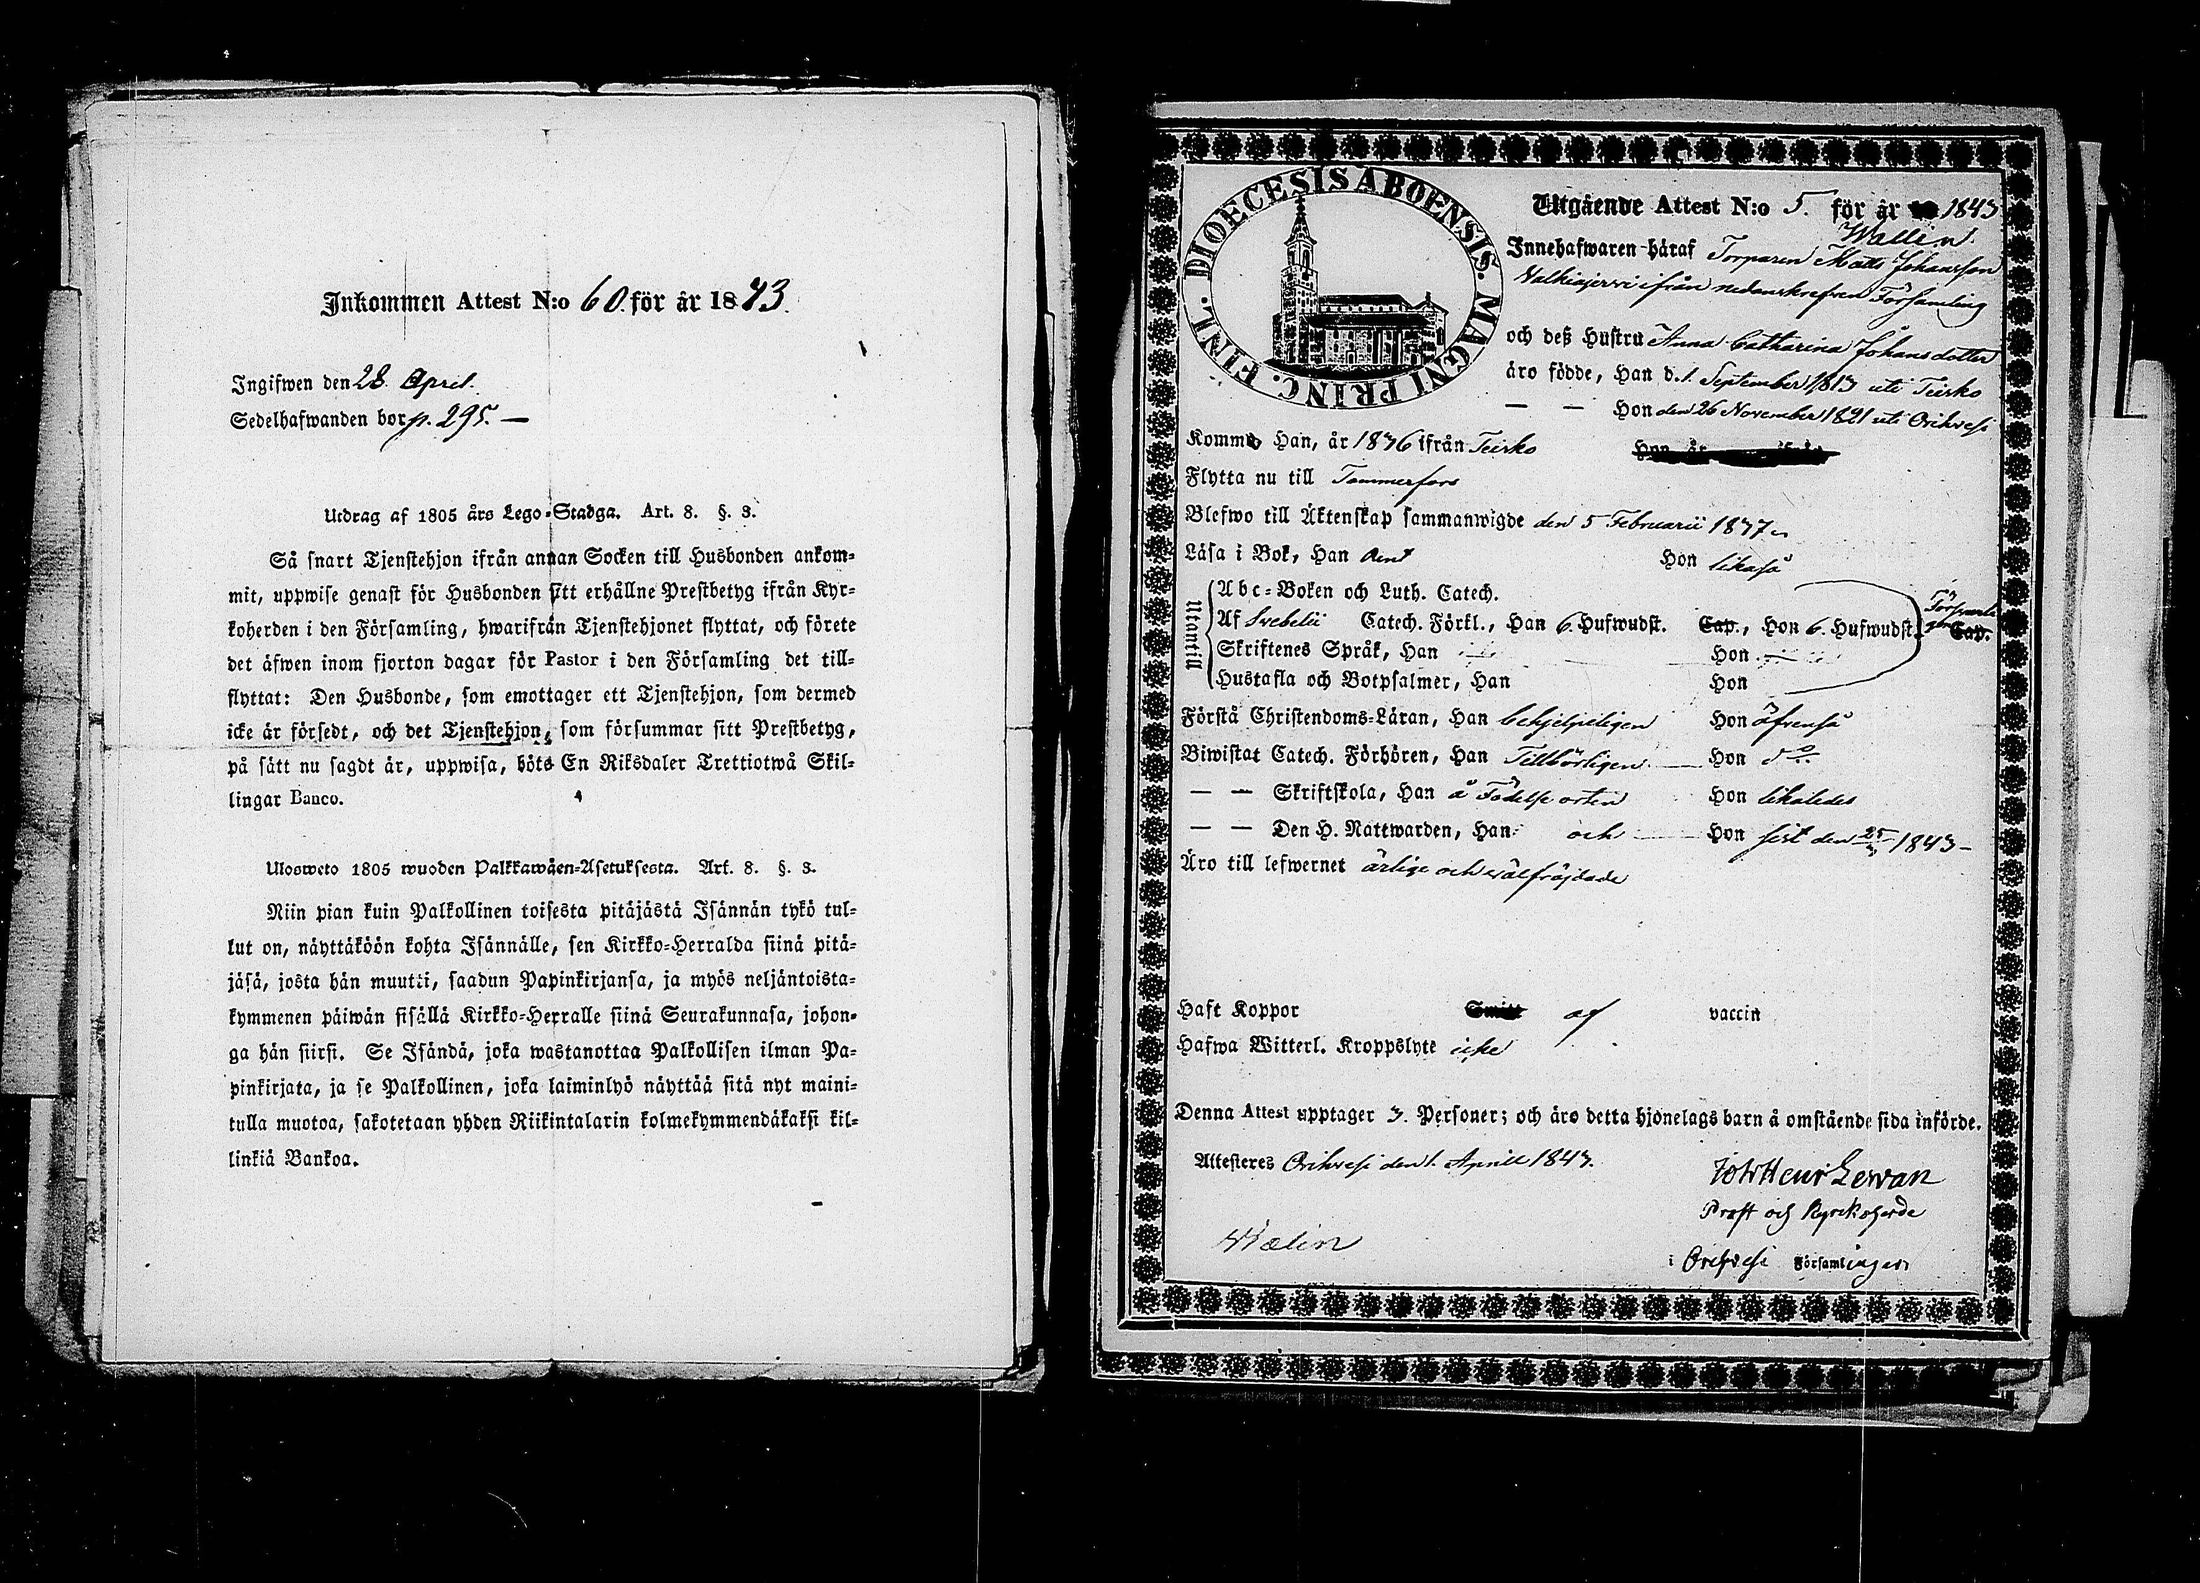 Inkommen Attest N:o 60. för år 1843.
Ingifwen den 28. April.
Sedelhafwanden bor p. 295. —
Utdrag af 1805 års Lego-Stadga. Art. 8. §. 3.
Så snart Tjenstehjon ifrån annan Socken till Husbonden ankom-
mit, uppwise genast för Husbonden sitt erhållne Prestbetyg ifrån Kyr-
koherden i den Församling, hwarifrån Tjenstehjonet flyttat, och förete
det äfwen inom fjorton dagar för Pastor i den Församling det till-
flyttat: Den Husbonde, som emottager ett Tjenstehjon, som dermed
icke är försedt, och det Tjenstehjon, som försummar sitt Prestbetyg,
på sätt nu sagdt är, uppwisa, böte En Riksdaler Trettiotwå Skil-
lingar Banco.
Ulosweto 1805 wuoden Palkkawäen-Asetuksesta. Art. 8. §. 3.
Niin pian kuin Palkollinen toisesta pitäjästä Isännän tykö tul-
lut on, näyttäköön kohta Isännälle, sen Kirkko-Herralda siinä pitä-
jäsä, josta hän muutti, saadun Papinkirjansa, ja myös neljäntoista-
kymmenen päiwän sisällä Kirkko-Herralle siinä Seurakunnasa, johon-
ga hän siirsi. Se Isändä, joka wastanottaa Palkollisen ilman Pa-
pinkirjata, ja se Palkollinen, joka laiminlyö näyttää sitä nyt maini-
tulla muotoa, sakotetaan yhden Riikintalarin kolmekymmendäkaksi kil-
linkiä Bankoa.
DIOECESIS ABOENSIS. MAGNI PRINC. FINL.
Utgående Attest N:o 5. för år 1843
Wallin.
Innehafwaren häraf Torparen Matts Johansson
Valkiajerwi ifrån nedanskrefven Församling
och deß Hustru Anna Catharina Johansdotter
äro födde, Han d. 1. September 1813 uti Teisko
— — Hon den 26 November 1821 uti Orihvesi
Komme Han, år 1836 ifrån Teisko Hon år ifrån
Flytta nu till Tammerfors
Blefwo till Äktenskap sammanwigde den 5 Februarii 1837
Läsa i Bok, Han rent Hon likaså
Utantill
Abc-Boken och Luth. Catech.
Af Svebelii Catech. Förkl., Han 6. Hufwudst. Cap., Hon 6. Hufwudst. Cap.
Skriftenes Språk, Han Hon
Hustafla och Botpsalmer, Han Hon
Förstå Christendoms-Läran, Han behjelpeligen Hon äfvenså
Biwistat Catech. Förhören, Han Tillbörligen — Hon do
— — Skriftskola, Han å Födelse orten Hon likaledes
— — Den H. Nattwarden, Han och — Hon sist den 25/3 1843 —
Äro till lefwernet ärlige och välfräjdade
Haft Koppor af vaccin
Hafwa Witterl. Kroppslyte icke
Denna Attest upptager 3. Personer; och äro detta hjonelags barn å omstående sida införde.
Attesteres Orihvesi den 1. Aprill 1843.
Joh Henr Lewan
Prost och Kyrkoherde
Walin
i Orihvesi Församlingen